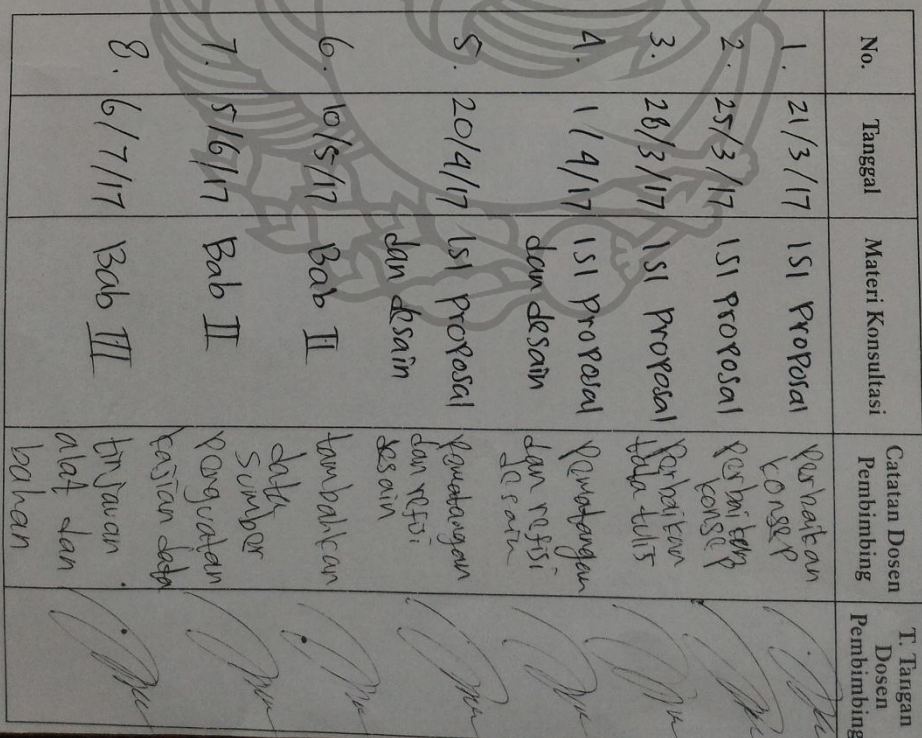 No. Tanggal Materi Konsultasi Catatan Dosen Pembimbing T. Tangan Dosen Pembimbing
1. 21/3/17 ISI Proposal Perbaikan
konsep
2. 25/3/17 ISI Proposal Perbaikan
konsep
3. 28/3/17 ISI Proposal Perbaikan
tata tulis
4. 1/4/17 ISI Proposal Pematangan
dan desain dan refisi
desain
5. 20/4/17 ISI Proposal Pematangan
dan desain dan refisi
desain
6. 10/5/17 Bab II tambahkan
data
sumber
7. 5/6/17 Bab II Penguatan
kajian data
8. 6/7/17 Bab III tinjauan
alat dan
bahan